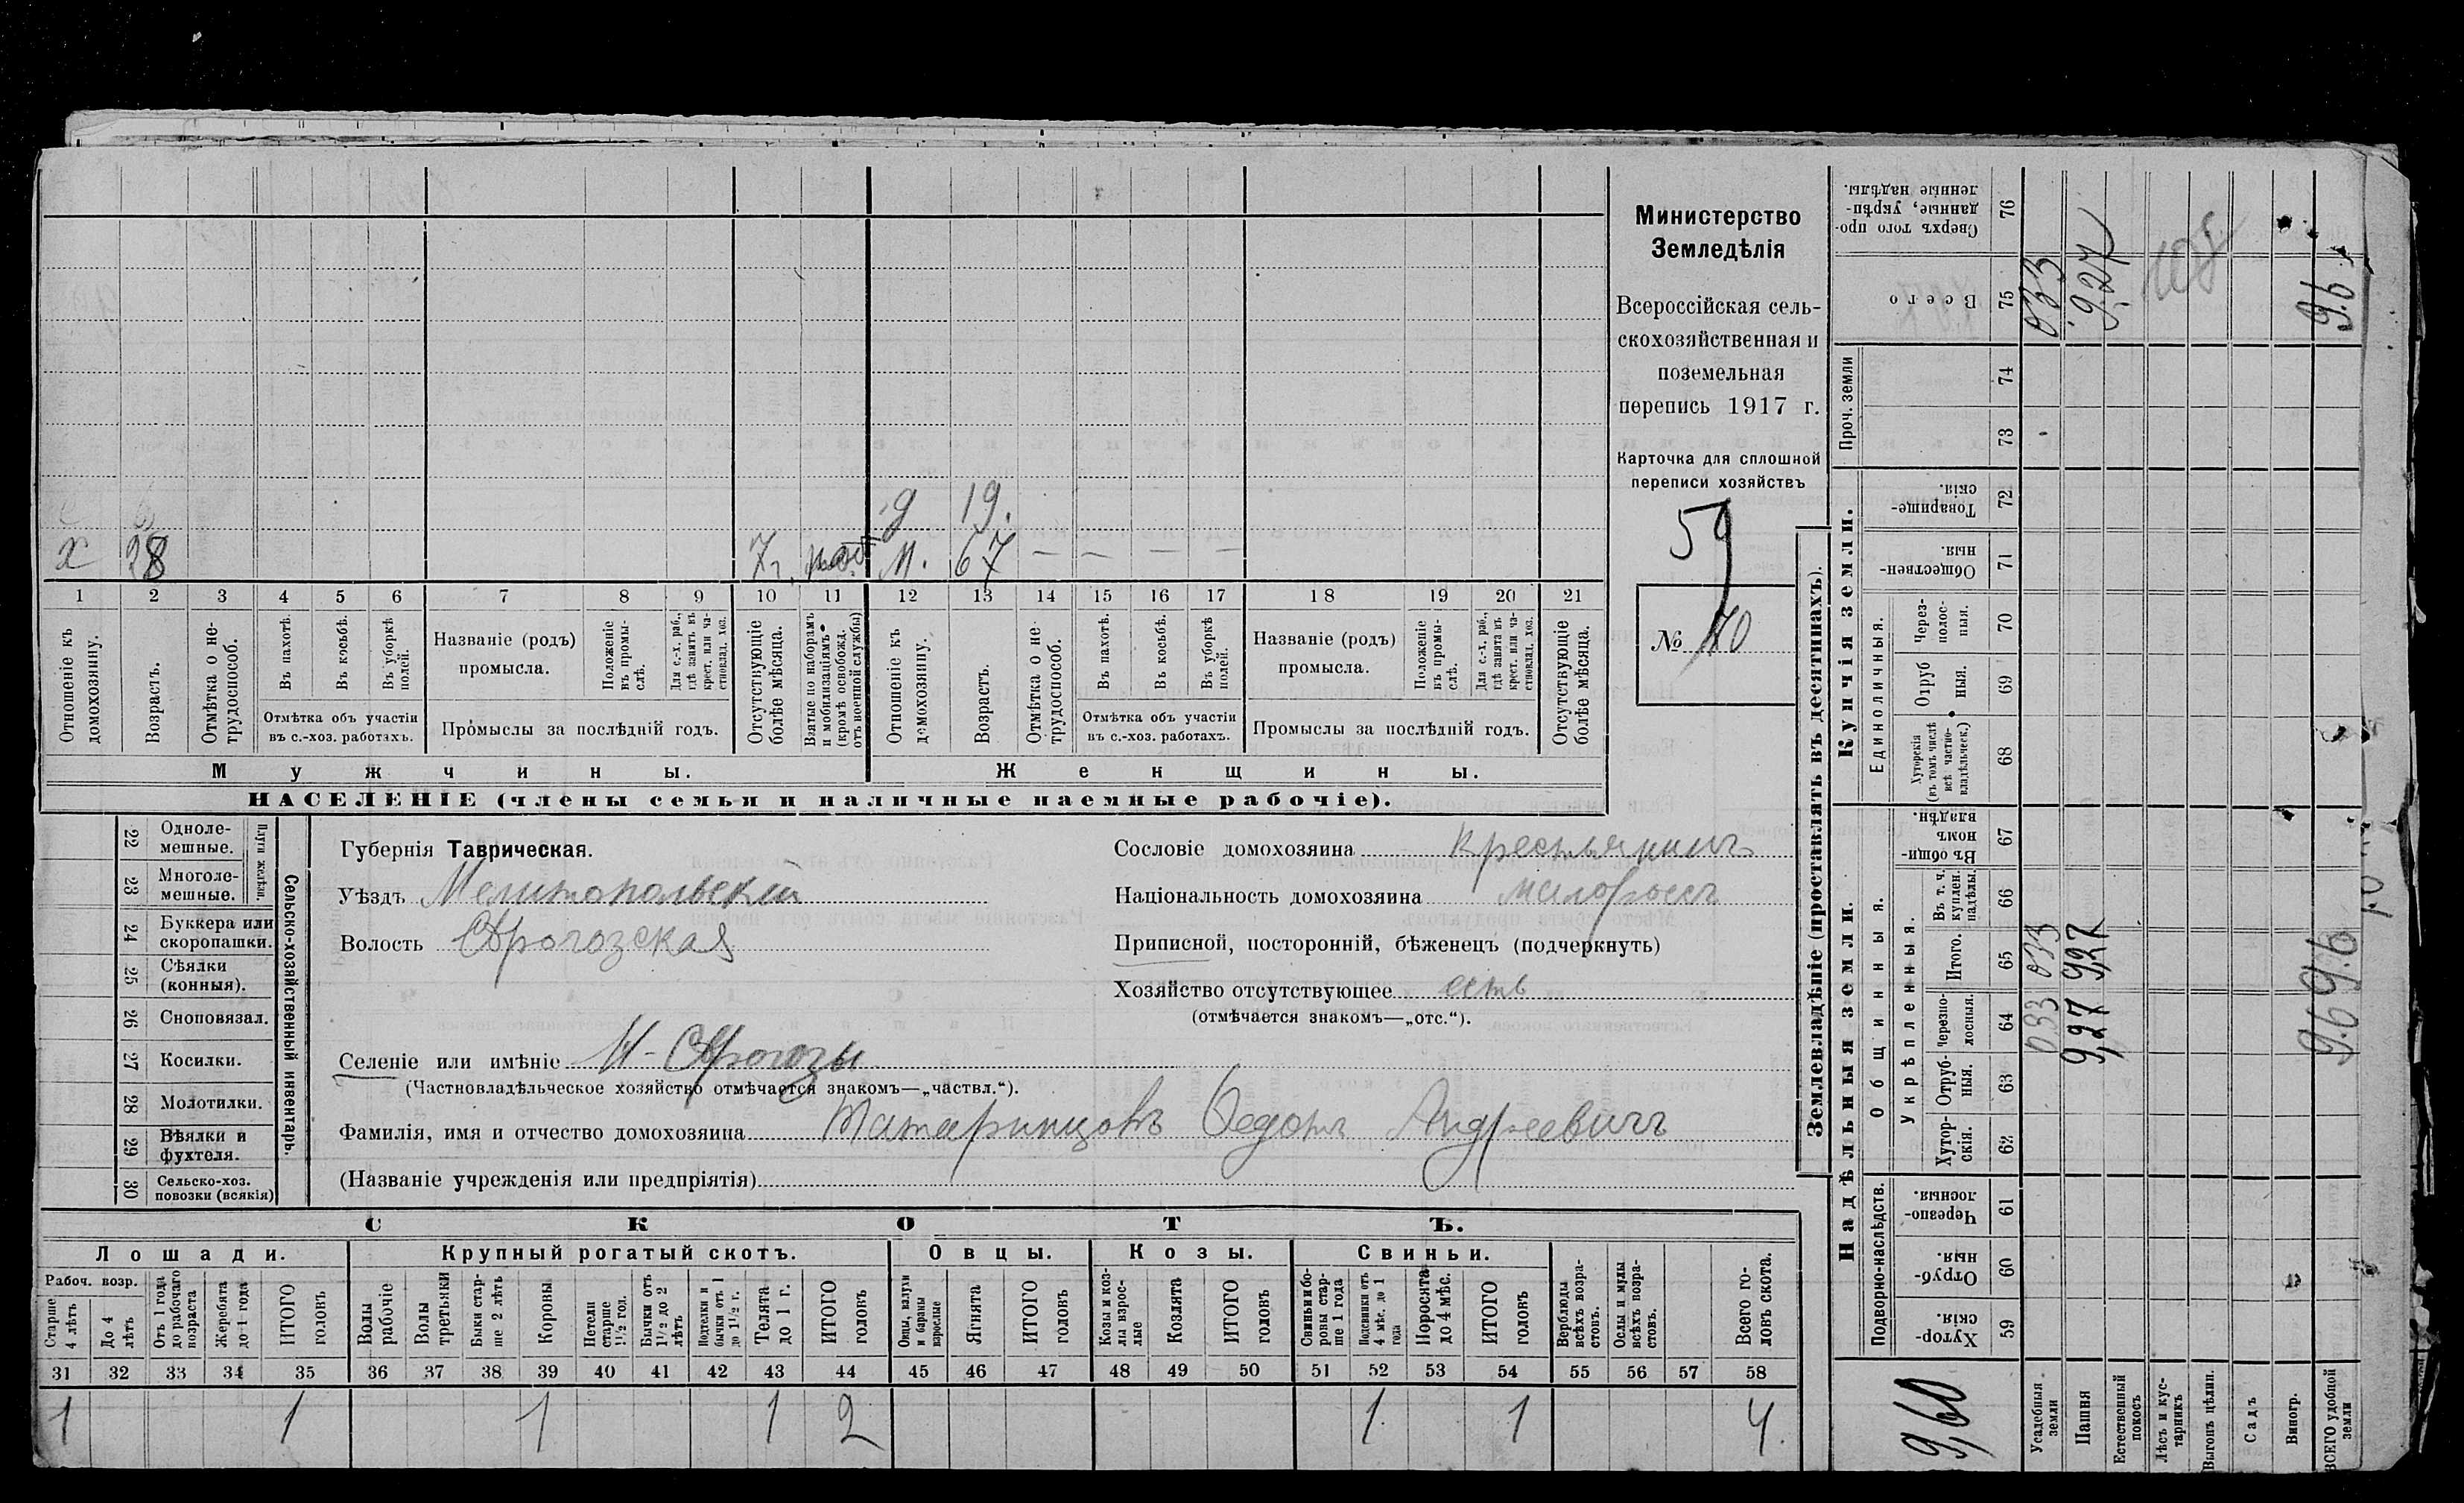 д 19.
х 28 7 г. моб М. 67 — — — —
1 2 3 4 5 6 7 8 9 10 11 12 13 14 15 16 17 18 19 20 21
Отношеніе къ домохозяину.
Возрастъ.
Отмѣтка о не-трудоспособ.
Въ пахотѣ.
Въ косьбѣ.
Въ уборкѣ полей.
Отмѣтка объ участіи въ с.-хоз. работахъ.
Названіе (родъ) промысла.
Положеніе въ промы-слѣ.
Для с.-х. раб., гдѣ занятъ въ крест. или ча-стновлад. хоз.
Промыслы за послѣдній годъ.
Отсутствующіе болѣе мѣсяца.
Взятые по наборамъ и мобилизаціямъ (кромѣ освобожд. отъ военной службы)
Отношеніе къ домохозяину.
Возрастъ.
Отмѣтка о не-трудоспособ.
Въ пахотѣ.
Въ косьбѣ.
Въ уборкѣ полей.
Отмѣтка объ участіи въ с.-хоз. работахъ.
Названіе (родъ) промысла.
Положеніе въ промы-слѣ.
Для с.-х. раб., гдѣ занята въ крест. или ча-стновлад. хоз.
Промыслы за послѣдній годъ.
Отсутствующіе болѣе мѣсяца.
Мужчины.
Женщины.
НАСЕЛЕНІЕ (члены семьи и наличные наемные рабочіе).
Министерство
Земледѣлія
Всероссійская сель-
скохозяйственная и
поземельная
перепись 1917 г.
Карточка для сплошной
переписи хозяйствъ
59
№ 70
Сельско-хозяйственный инвентарь.
Плуги желѣзн.
22 Одноле-мешные.
23 Многоле-мешные.
24 Буккера или скоропашки.
25 Сѣялки (конныя).
26 Сноповязал.
27 Косилки.
28 Молотилки.
29 Вѣялки и фухтеля.
30 Сельско-хоз. повозки (всякія)
Губернія Таврическая.
Уѣздъ Мелитопольскій
Волость
Селеніе или имѣніе
(Частновладѣльческое хозяйство отмѣчается знакомъ—„частвл.“).
Фамилія, имя и отчество домохозяина Татаринцовъ Федотъ Андреевичъ
(Названіе учрежденія или предпріятія)
Сословіе домохозяина крестьянинъ
Національность домохозяина малороссъ
Приписной, посторонній, бѣженецъ (подчеркнуть)
Хозяйство отсутствующее есть
(отмѣчается знакомъ—„отс.“).
СКОТЪ.
Лошади.
Крупный рогатый скотъ.
Овцы.
Козы.
Свиньи.
Рабоч. возр.
Старше 4 лѣтъ
До 4 лѣтъ
Отъ 1 года до рабочаго возраста
Жеребята до 1 года
ИТОГО головъ
Волы рабочіе
Волы третьяки
Быки стар-ше 2 лѣтъ
Коровы
Нетели старше 1½ год.
Бычки отъ 1½ до 2 лѣтъ
Подтелки и бычки отъ 1 до 1½ г.
Телята до 1 г.
ИТОГО головъ
Овцы, валухи и бараны взрослые
Ягнята
ИТОГО головъ
Козы и коз-лы взрос-лые
Козлята
ИТОГО головъ
Свиньи и бо-ровы стар-ше 1 года
Подсвинки отъ 4 мѣс. до 1 года
Поросята до 4 мѣс.
ИТОГО головъ
Верблюды всѣхъ возра-стовъ.
Ослы и мулы всѣхъ возра-стовъ.
Всего го-ловъ скота.
31 32 33 34 35 36 37 38 39 40 41 42 43 44 45 46 47 48 49 50 51 52 53 54 55 56 57 58
1 1 1 1 2 1 1 4
Землевладѣніе (проставлять въ десятинахъ).
Надѣльныя земли.
Купчія земли.
Проч. земли
Подворно-наслѣдств.
Общинныя.
Укрѣпленныя.
Единоличныя.
Хутор-скія 59
Отруб-ныя. 60
Черезпо-лосныя. 61
Хутор-скія. 62
Отруб-ныя. 63
Черезпо-лосныя. 64
Итого. 65
Въ т. ч. куплен. надѣлы. 66
Въ общи-номъ владѣн. 67
Хуторскія (въ томъ числѣ всѣ частно-владѣльческ.) 68
Отруб ныя. 69
Через-полос-ныя. 70
Обществен-ныя. 71
Товарище-скія. 72
73
74
Всего 75
Сверхъ того про-данные, укрѣп-ленные надѣлы. 76
9,60
Усадебныя земли 033 033 033
Пашня 9,27 9,27 9,27
Естественный покосъ
Лѣсъ и кус-тарникъ
Выгонъ цѣлин.
Садъ
Виногр.
ВСЕГО удобной земли 9.6 9.6 9.6